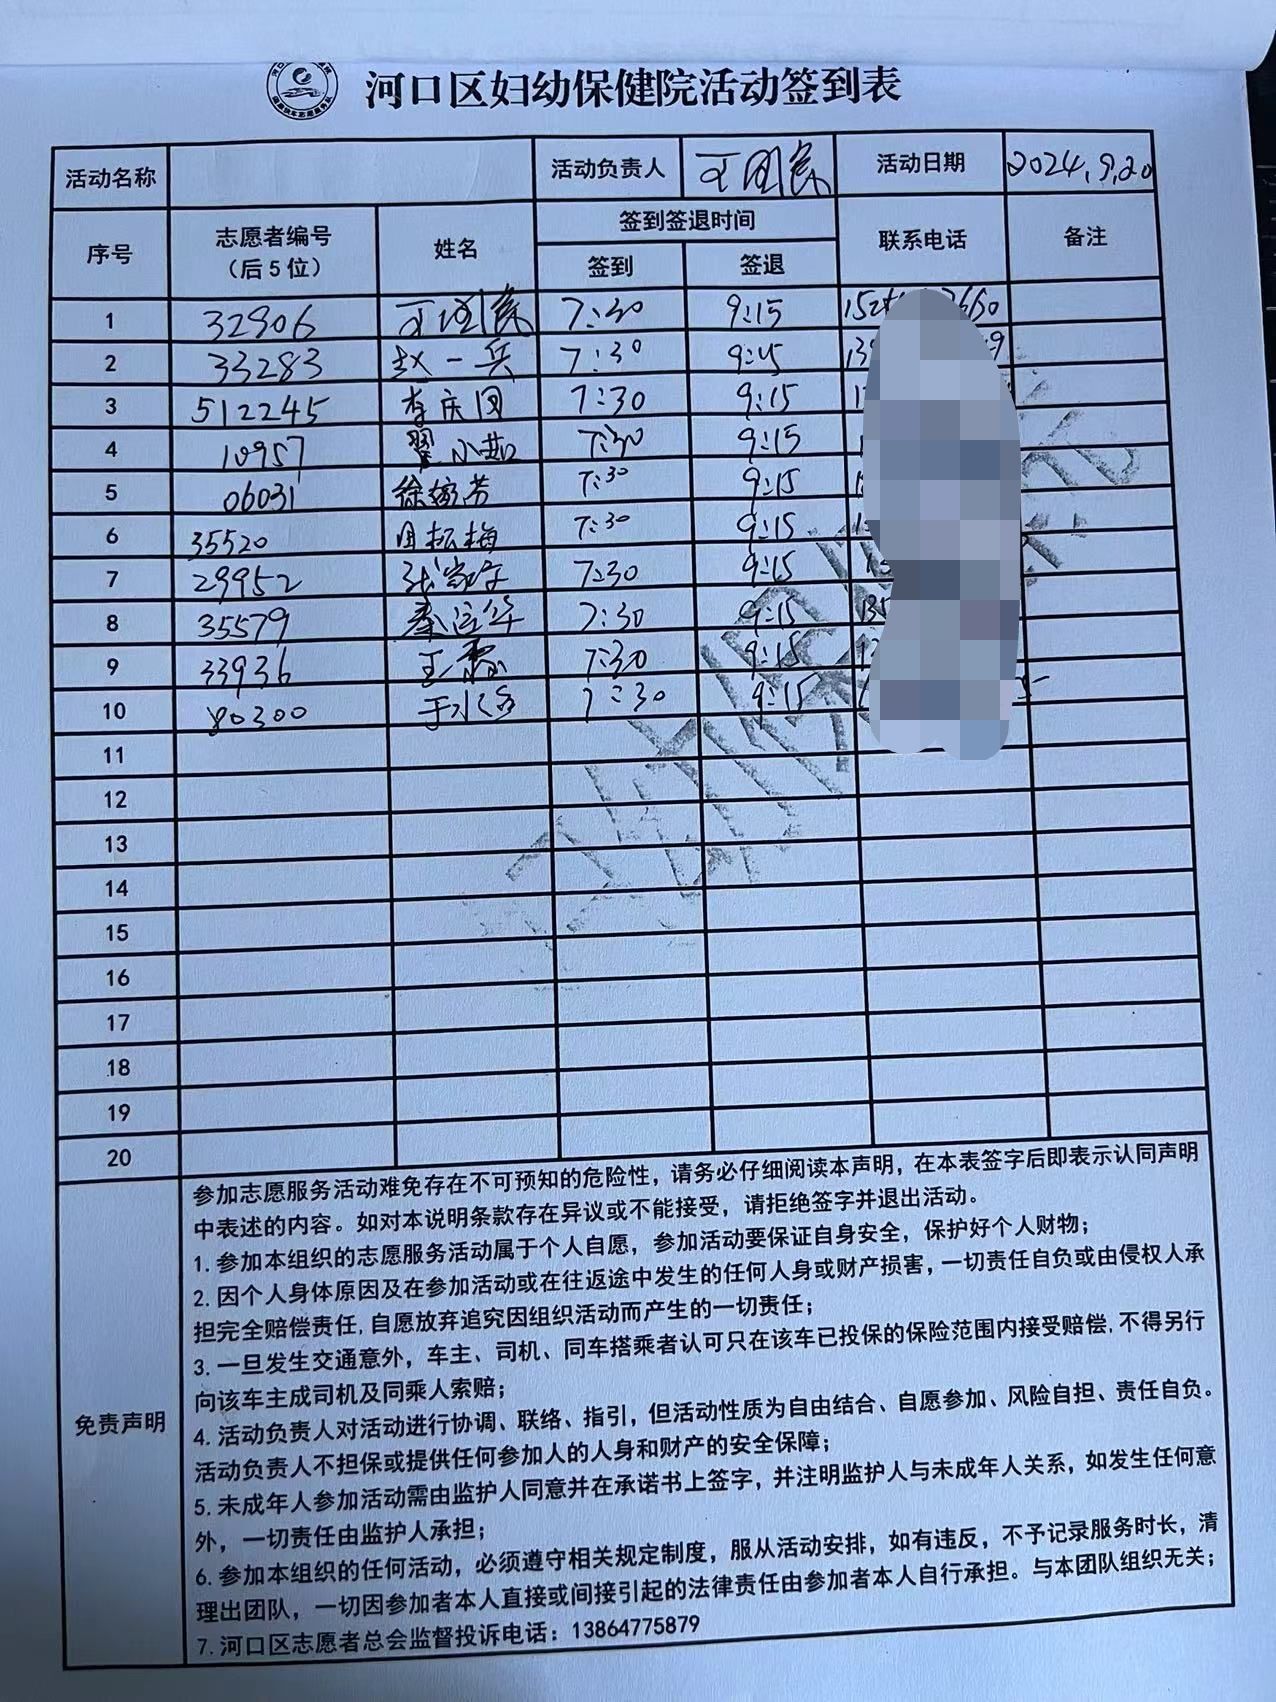 河口区妇幼保健院活动签到表
活动名称 活动负责人 活动日期 2024.9.20
序号 志愿者编号（后5位） 姓名 签到签退时间 联系电话 备注
签到 签退
1 32906 7:30 9:15
2 33283 赵一兵 7:30 9:15
3 512245 李庆国 7:30 9:15
4 10957 翟小茹 7:30 9:15
5 06031 徐婉芳 7:30 9:15
6 35520 田松梅 7:30 9:15
7 29952 7:30 9:15
8 35579 7:30 9:15
9 33936 王霞 7:30 9:15
10 80300 于水 7:30 9:15
11
12
13
14
15
16
17
18
19
20
免责声明
参加志愿服务活动难免存在不可预知的危险性，请务必仔细阅读本声明，在本表签字后即表示认同声明
中表述的内容。如对本说明条款存在异议或不能接受，请拒绝签字并退出活动。
1. 参加本组织的志愿服务活动属于个人自愿，参加活动要保证自身安全，保护好个人财物；
2. 因个人身体原因及在参加活动或在往返途中发生的任何人身或财产损害，一切责任自负或由侵权人承
担完全赔偿责任,自愿放弃追究因组织活动而产生的一切责任；
3. 一旦发生交通意外，车主、司机、同车搭乘者认可只在该车已投保的保险范围内接受赔偿,不得另行
向该车主成司机及同乘人索赔；
4. 活动负责人对活动进行协调、联络、指引，但活动性质为自由结合、自愿参加、风险自担、责任自负。
活动负责人不担保或提供任何参加人的人身和财产的安全保障；
5. 未成年人参加活动需由监护人同意并在承诺书上签字，并注明监护人与未成年人关系，如发生任何意
外，一切责任由监护人承担；
6. 参加本组织的任何活动，必须遵守相关规定制度，服从活动安排，如有违反，不予记录服务时长，清
理出团队，一切因参加者本人直接或间接引起的法律责任由参加者本人自行承担。与本团队组织无关；
7. 河口区志愿者总会监督投诉电话：13864775879